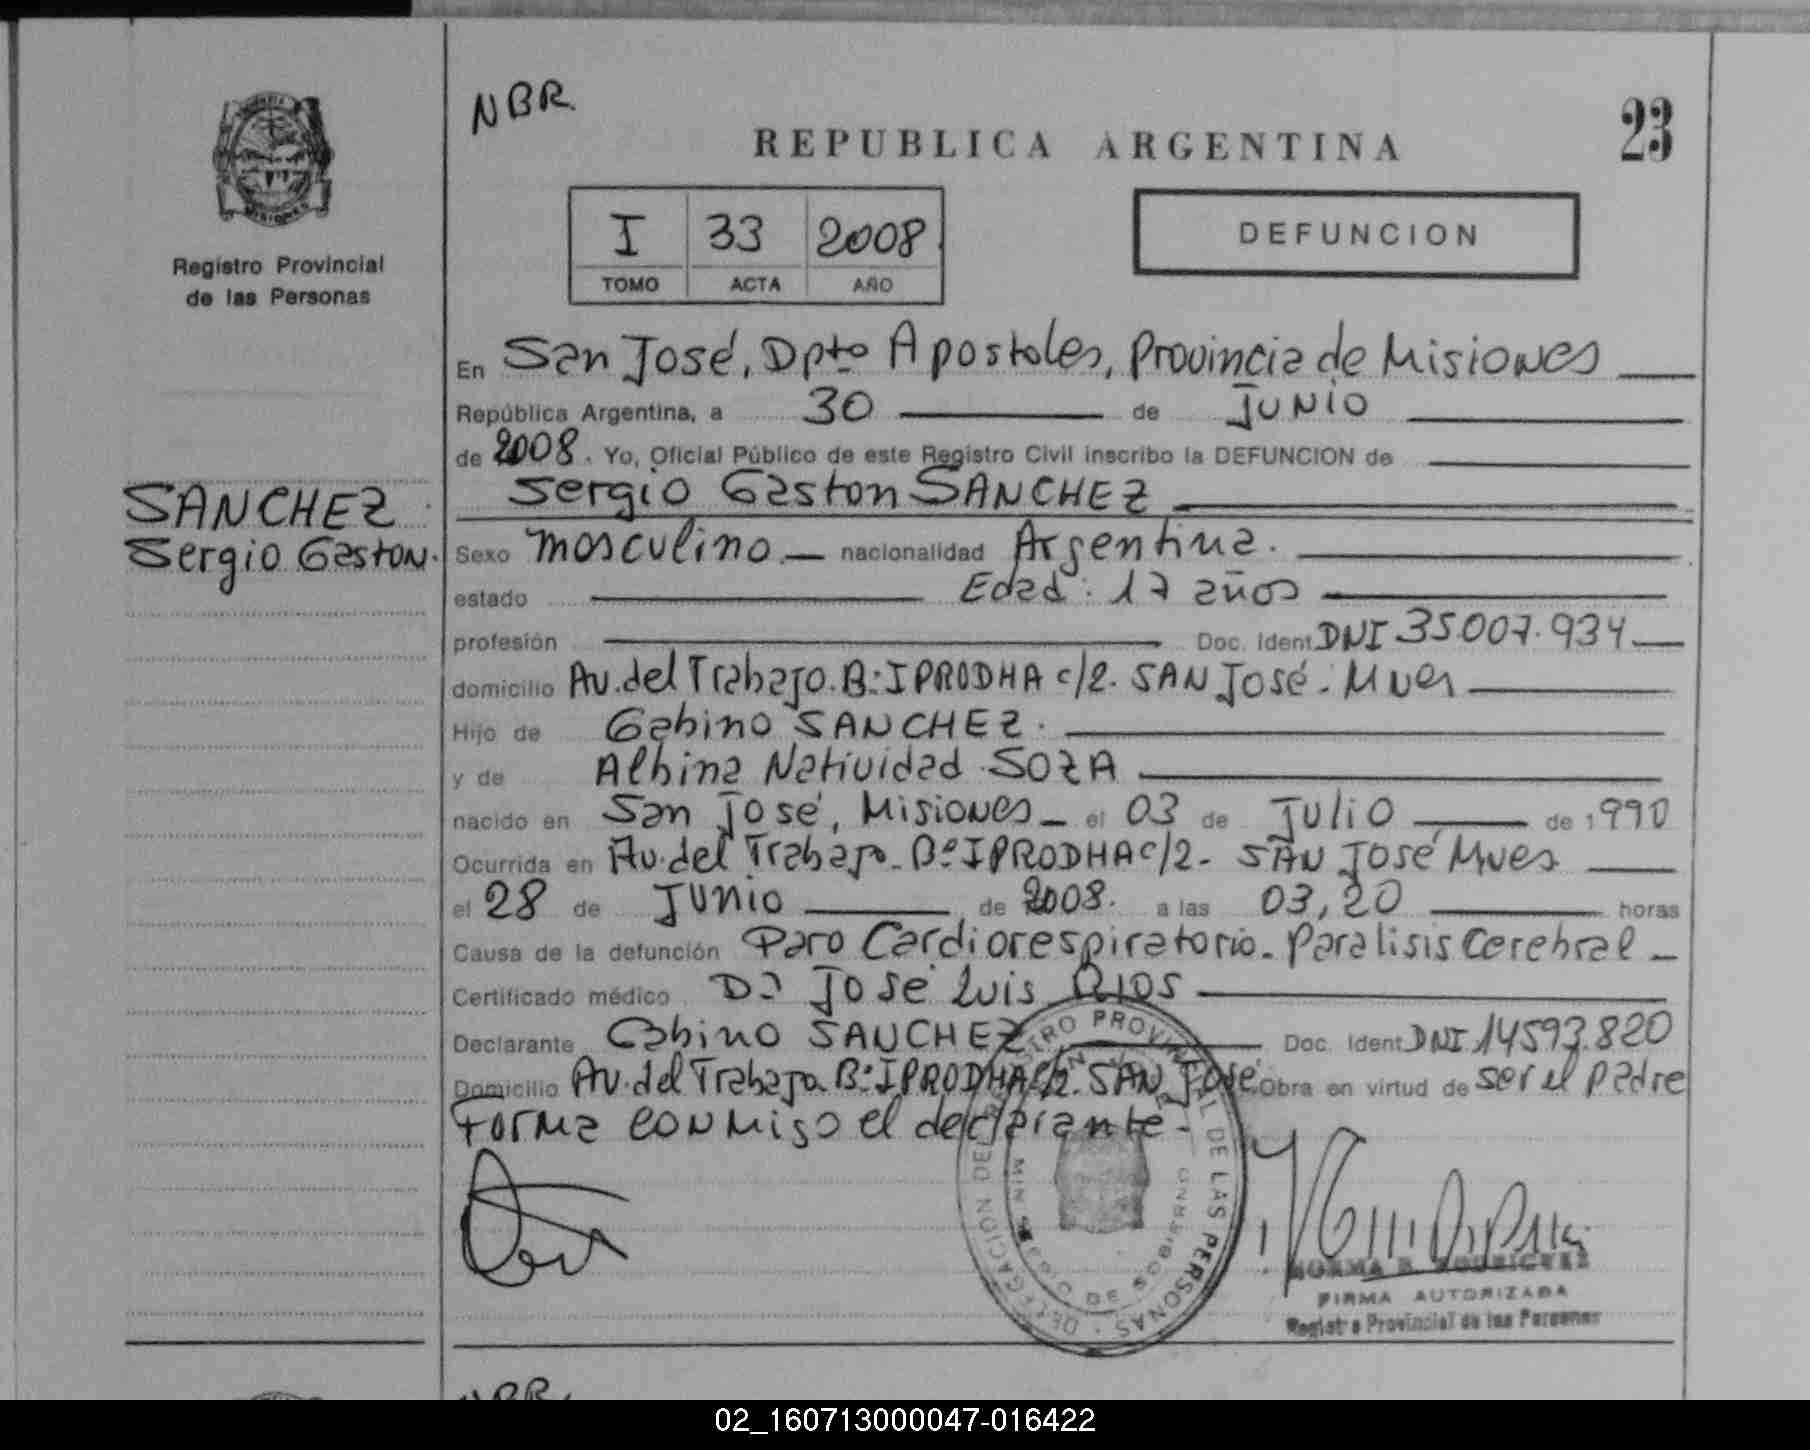 NBR.
REPUBLICA ARGENTINA
23
MISIONES
Registro Provincial
de las Personas
I 33 2008
TOMO ACTA AÑO
DEFUNCION
En San José, Dpto Apostoles, Provincia de Misiones
República Argentina, a 30 de Junio
de 2008. Yo, Oficial Público de este Registro Civil inscribo la DEFUNCION de
Sergio Gaston SANCHEZ
SANCHEZ
Sergio Gaston.
Sexo masculino nacionalidad Argentina.
estado Edad: 17 años
profesión Doc. Ident. DNI 35.007.934
domicilio Av. del Trabajo. B: IPRODHA c/2. SAN José. Mnes
Hijo de Gabino SANCHEZ.
y de Albina Natividad SOZA
nacido en San José, Misiones el 03 de Julio de 1990
Ocurrida en Av. del Trabajo. Bº IPRODHA c/2 - SAN José Mnes
el 28 de Junio de 2008. a las 03,20 horas
Causa de la defunción Paro Cardiorespiratorio. Paralisis Cerebral
Certificado médico Dr José Luis RIOS
Declarante Gabino SANCHEZ Doc. Ident. DNI 14593.820
Domicilio Av. del Trabajo B: IPRODHA c/2. SAN José. Obra en virtud de ser el padre
Forma conmigo el declarante.
DELEGACION DEL REGISTRO PROVINCIAL DE LAS PERSONAS
DE GOBIERNO
NORMA B. RODRIGUEZ
FIRMA AUTORIZADA
Registro Provincial de las Personas
NBR.
02_160713000047-016422